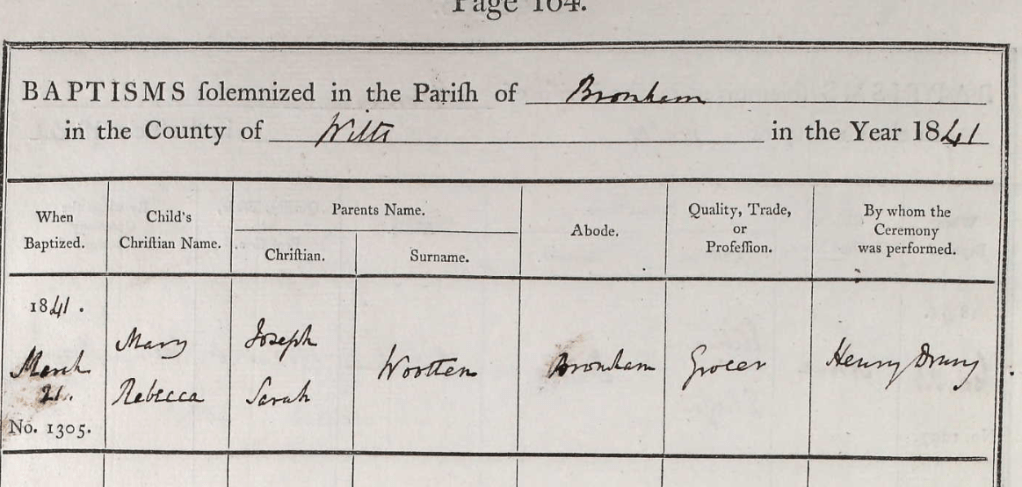 Page 164.
BAPTISMS solemnized in the Parish of Bromham
in the County of Wilts in the Year 1841
When Baptized. Child's Christian Name. Parents Name. Abode. Quality, Trade, or Profession. By whom the Ceremony was performed.
Christian. Surname.
1841.
March 21. Mary Rebecca Joseph Sarah Wootten Bromham Grocer Henry Drury
No. 1305.